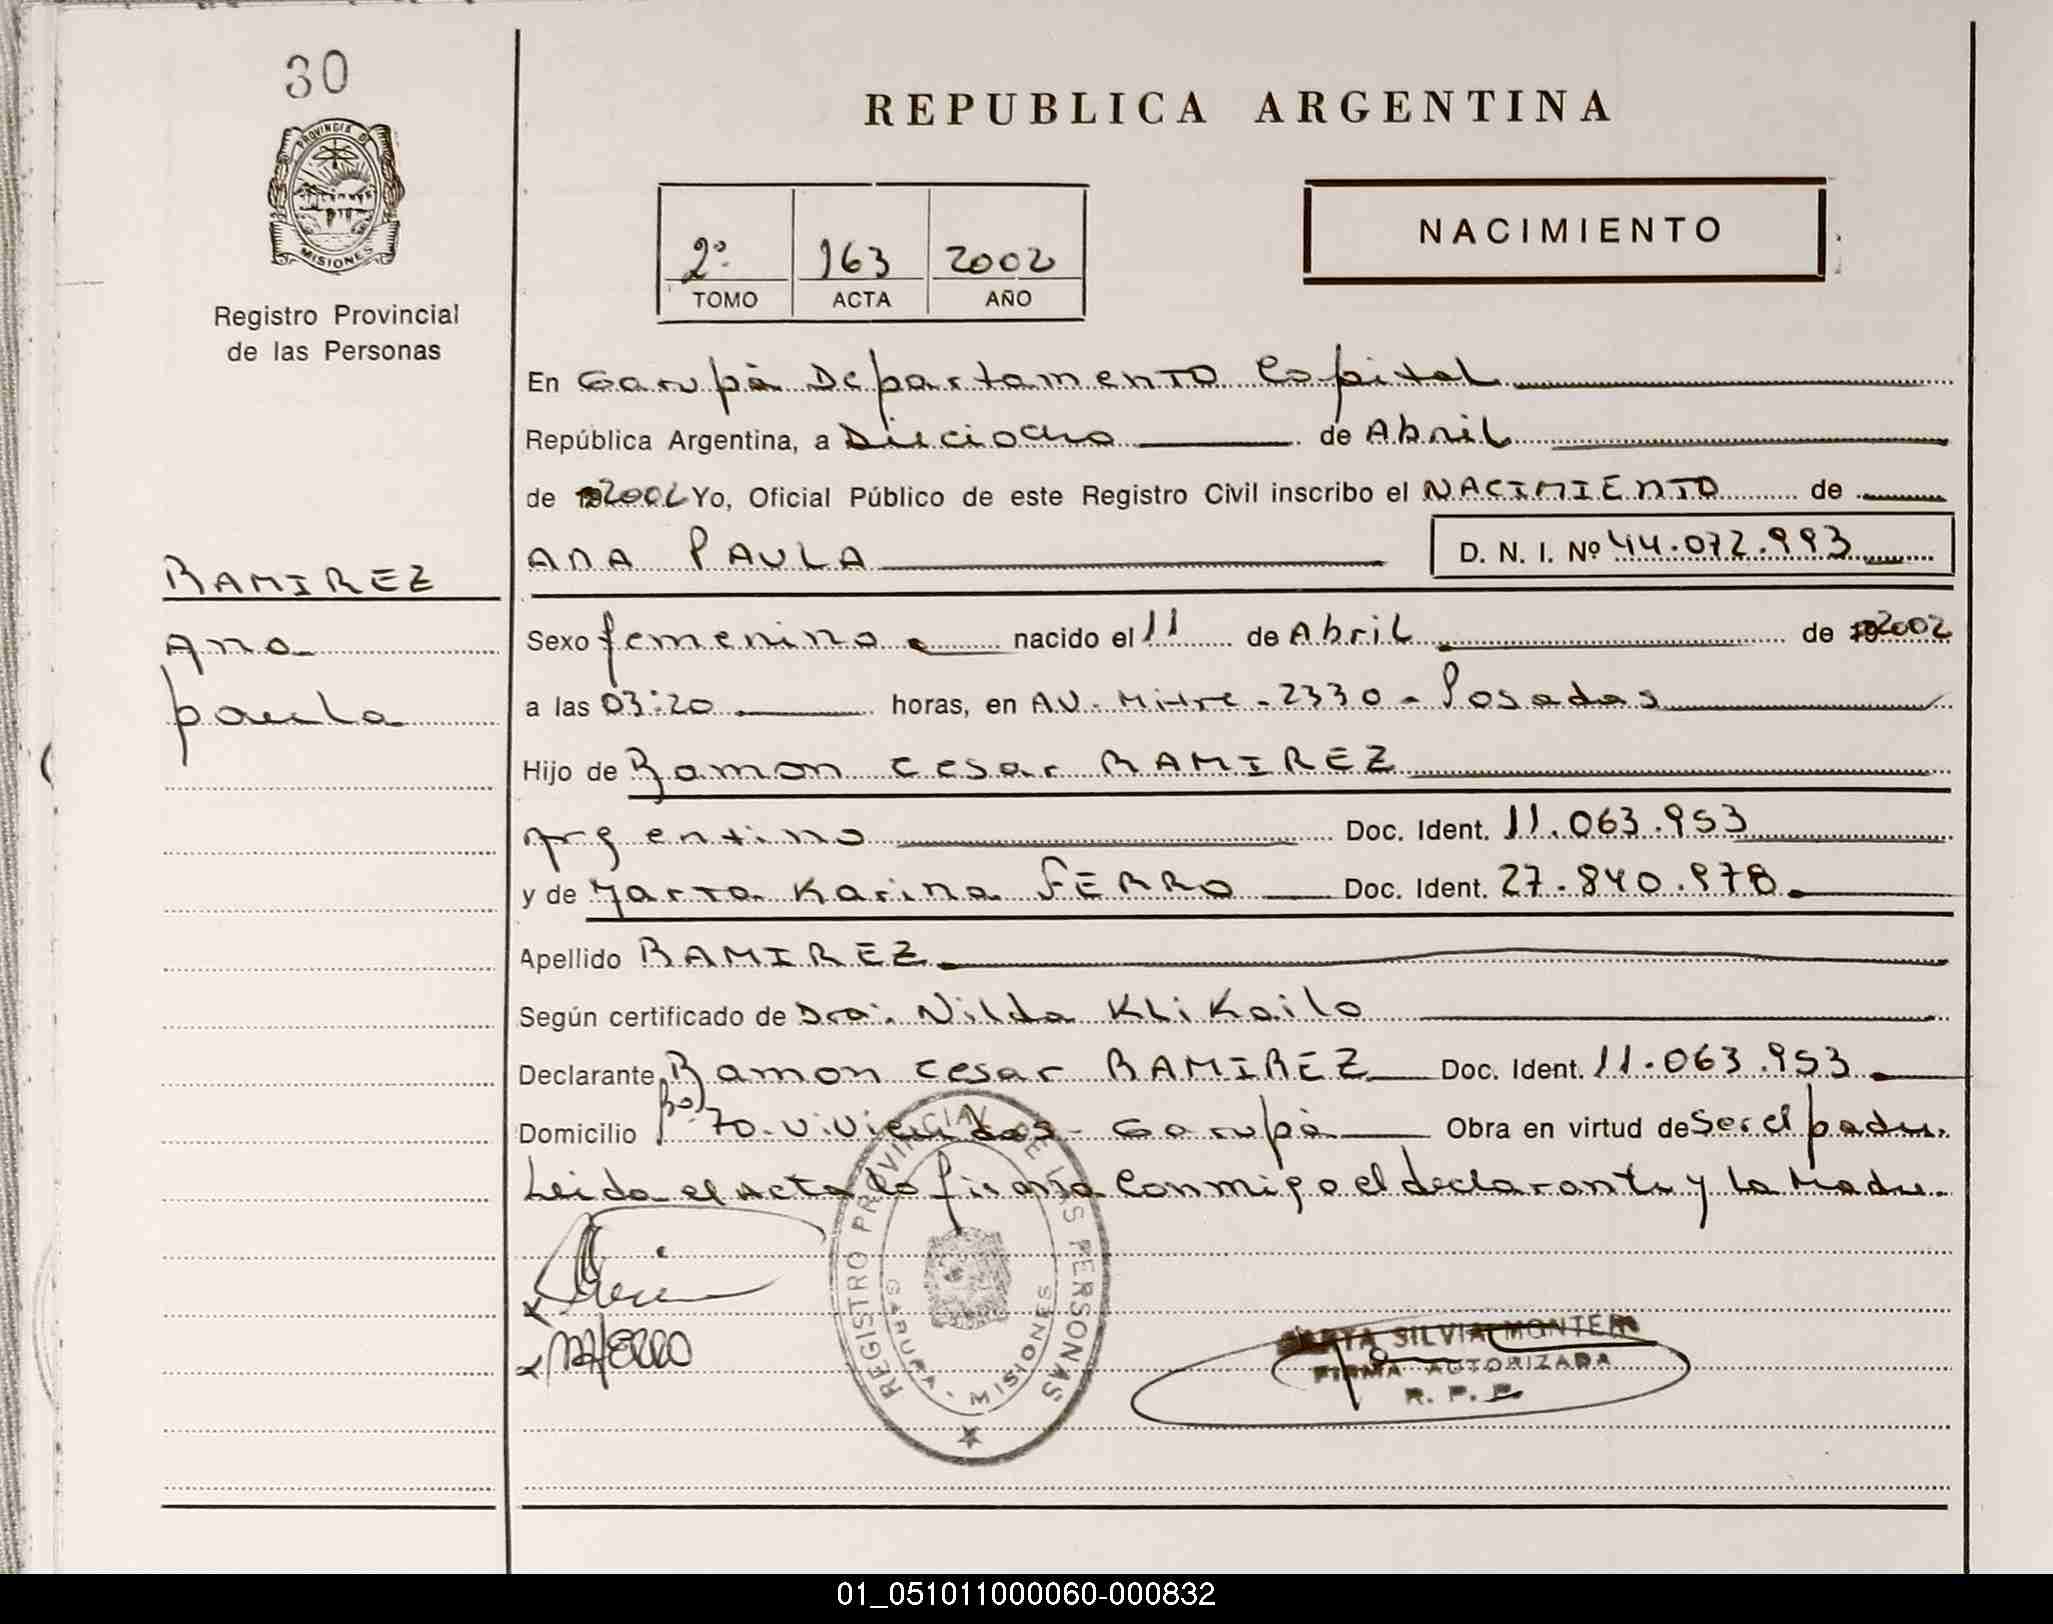 30
PROVINCIA DE
MISIONES
Registro Provincial
de las Personas
RAMIREZ
Ana
paula
REPUBLICA ARGENTINA
2º 163 2002
TOMO ACTA AÑO
NACIMIENTO
En Garupá Departamento Capital
República Argentina, a Dieciocho de Abril
de 2002 Yo, Oficial Público de este Registro Civil inscribo el NACIMIENTO de
ANA PAULA D. N. I. Nº 44.072.993
Sexo femenino nacido el 11 de Abril de 2002
a las 03:20 horas, en AV. Mitre - 2330 - Posadas
Hijo de Ramon Cesar RAMIREZ
Argentino Doc. Ident. 11.063.953
y de Marta Karina FERRO Doc. Ident. 27.840.978
Apellido RAMIREZ
Según certificado de Dra. Nilda KLiKailo
Declarante Ramon Cesar RAMIREZ Doc. Ident. 11.063.953
Domicilio Bº 70 Viviendas - Garupá Obra en virtud de Ser el padre.
Leida el Acta la firma Conmigo el declarante y la Madre.
REGISTRO PROVINCIAL DE LAS PERSONAS
GARUPA - MISIONES
SILVIA MONTERO
FIRMA AUTORIZADA
R. P. P.
01_051011000060-000832